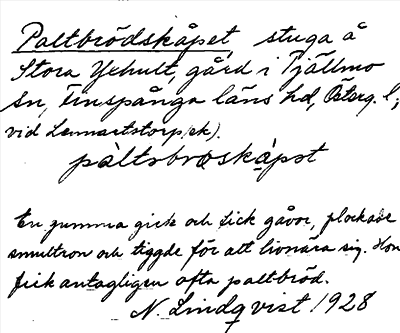 Paltbrödskåpet, stuga å
Stora Yxhult, gård i Tjällmo
sn, Finspånga läns hd, Österg. l;
vid Lennartstorp (ek).
pàltsbroskåpst
En gumma gick och fick gåvor, plockade
smultron och tiggde för att livnära sig. Hon
fick antagligen ofta paltbröd.
N. Lindqvist 1928